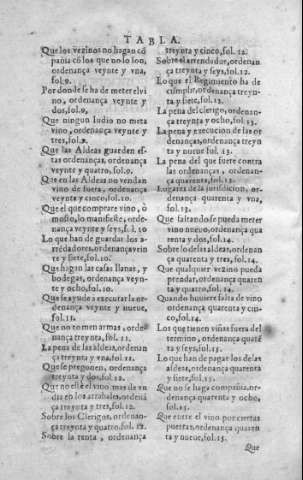 TABLA.
Que los vezinos no hagan cō
pañia cō los que no lo son,
ordenança veynte y vna,
fol.9.
Por donde se ha de meter el vi
no, ordenança veynte y
dos, fol.9.
Que ningun Iudio no meta
vino, ordenança veynte y
tres, fol.9.
Que las Aldeas guarden es-
tas ordenanças, ordenança
veynte y quatro, fol.9.
Que en las Aldeas no vendan
vino de fuera, ordenança
veynte y cinco, fol.10.
Que el que comprare vino, ò
mosto, lo manifieste, orde-
nança veynte y seys, fol.10
Lo que han de guardar los a-
rredadores, ordenança veyn
te y siete, fol.10.
Que hagan las casas llanas, y
bodegas, ordenança veyn-
te y ocho, fol.10.
Que se ayude a executar la or-
denança veynte y nueue,
fol.11.
Que no tomen armas, orde-
nança treynta, fol. 11.
La pena de las aldeas, ordenan
ça treynta y vna, fol.11.
Que se pregonen, ordenança
treynta y dos, fol.12.
Que no esté el vino mas de vn
dia en los arrabales, ordená
ça treynta y tres, fol.12.
Sobre los Clerigos, ordenan-
ça treynta y quatro, fol.12.
Sobre la renta, ordenança
treynta y cinco, fol. 12.
Sobre el arrendador, ordenan
ça treynta y seys, fol.12.
Lo que el Regimiento ha de
cumplir, ordenança treyn-
ta y siete, fol.12.
La pena del clerigo, ordenan-
ça treynta y ocho, fol.13.
La pena y execucion de las or
denanças, ordenança treyn
ta y nueue fol. 13.
La pena del que fuere contra
las ordenanças, ordenan-
ça quarenta, fol.13.
Lugares de la jurisdicion, or-
denança quarenta y vna,
fol.13.
Que faltando se pueda meter
vino nueuo, ordenança qua
renta y dos, fol.14.
Sobre los de las aldeas, ordenan
ça quarenta y tres, fol.14.
Que qualquier vezino pueda
prendar, ordenança quaren
ta y quatro, fol.14.
Quando huuiere falta de vino
ordenança quarenta y cin-
co, fol.14.
Los que tienen viñas fuera del
termino, ordenança quarē
ta y seys, fol.15.
Lo que han de pagar los de las
aldeas, ordenança quarenta
y siete, fol.15.
Que no se haga compañia, or-
denança quarenta y ocho,
fol.15.
Que entre el vino por ciertas
puertas, ordenança quaren
ta y nueue, fol.15.
Que